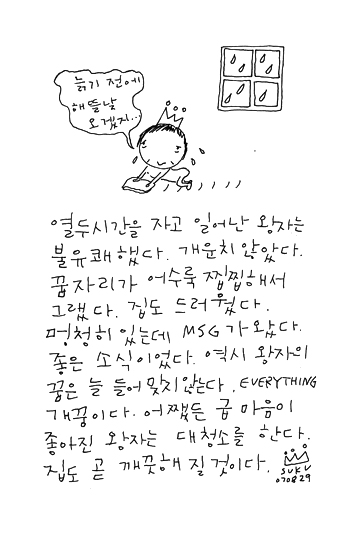 늙기 전에
해뜰날
오겠지..
열두시간을 자고 일어난 왕자는
불유쾌했다. 개운치 않았다.
꿈자리가 어수룩 찝찝해서
그랬다. 집도 드러웠다.
멍청히 있는데 MSG가 왔다.
좋은 소식이었다. 역시 왕자의
꿈은 늘 들어맞지않는다. EVERYTHING
개꿈이다. 어쨌든 급 마음이
좋아진 왕자는 대청소를 한다.
집도 곧 깨끗해 질 것이다.
SUKU
070829